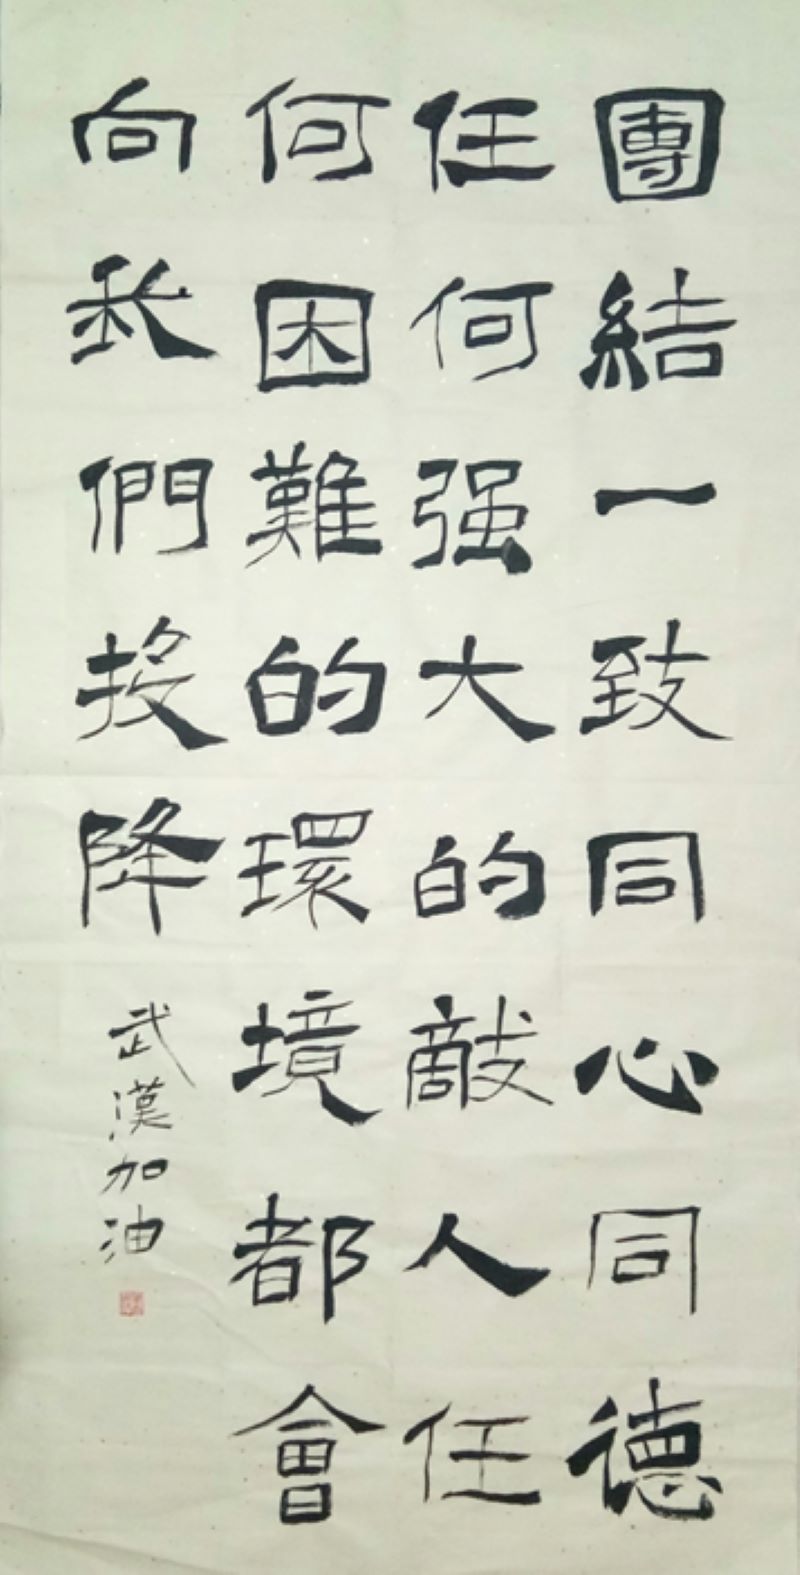 團結一致同心同德
任何强大的敵人任
何困難的環境都會
向我們投降
武漢加油